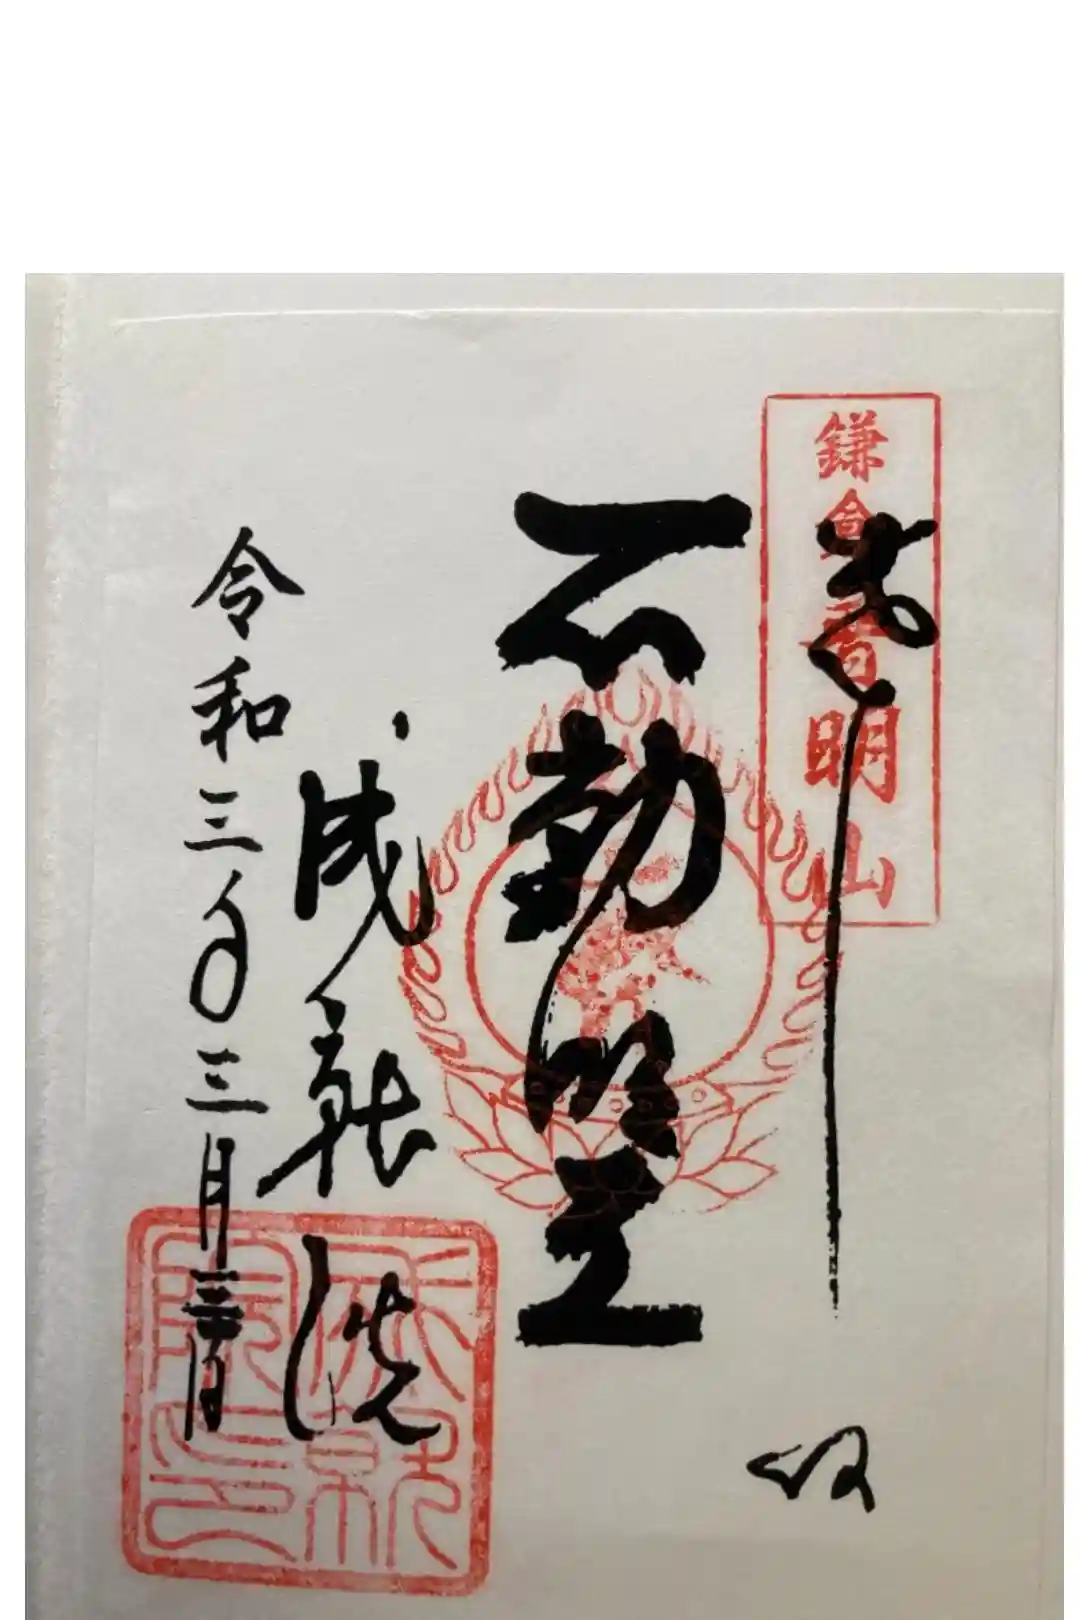 鎌倉普明山
奉拝
不動明王
成就院
令和三年三月日
成就院印